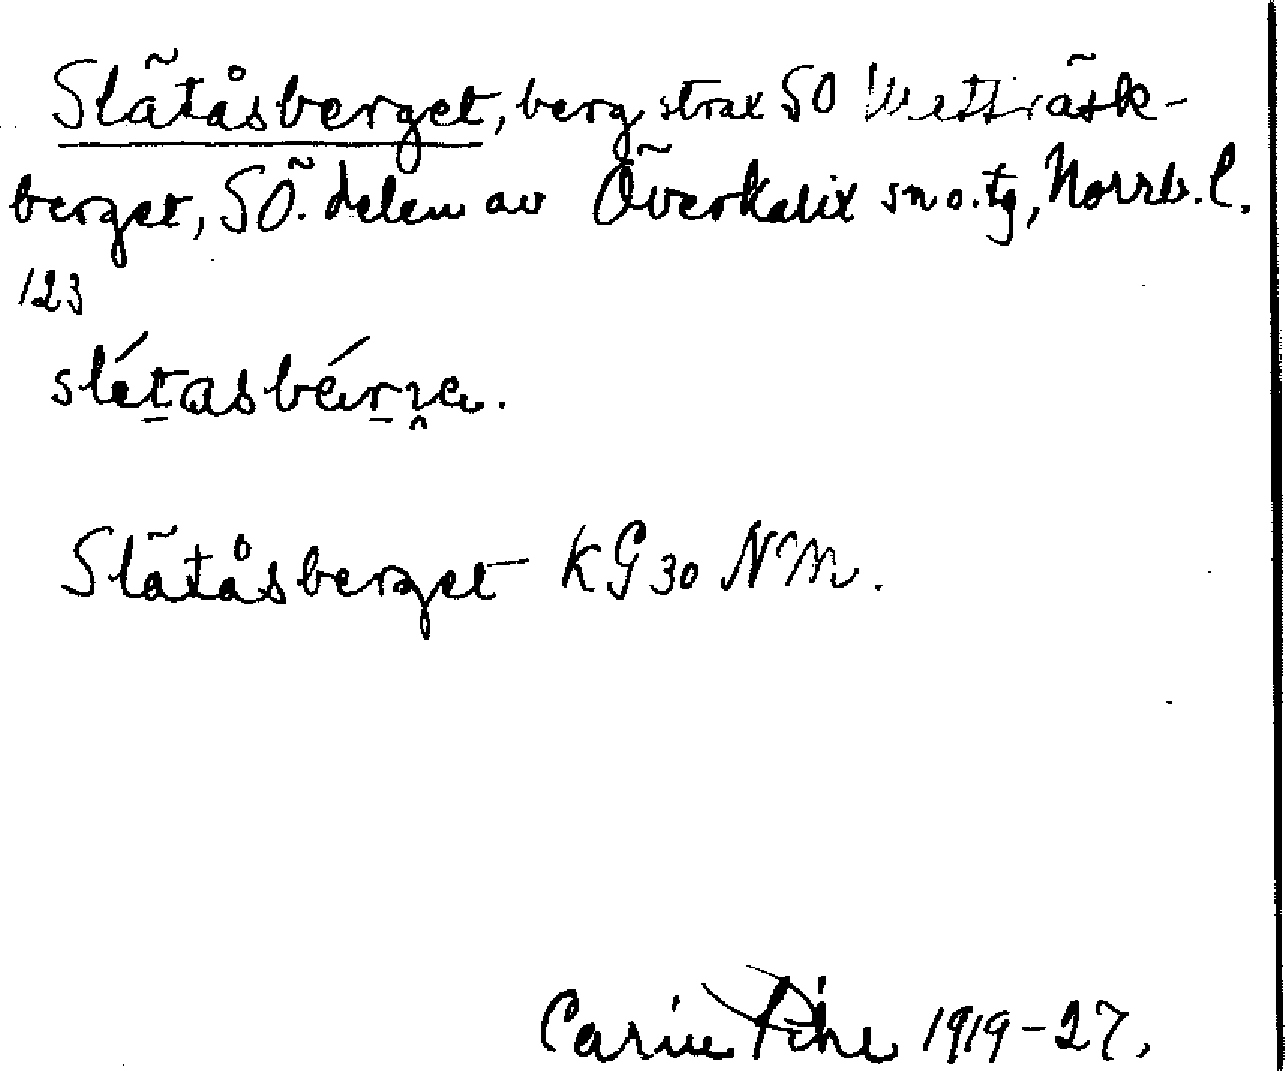 Slätåsberget, berg strax SO Metträsk-
berget, SÖ. delen av Överkalix sn o. tg, Norrb. l.
123
slétasbérje.
Slätåsberget KG 30 NM.
Carin Pihl 1919-27.